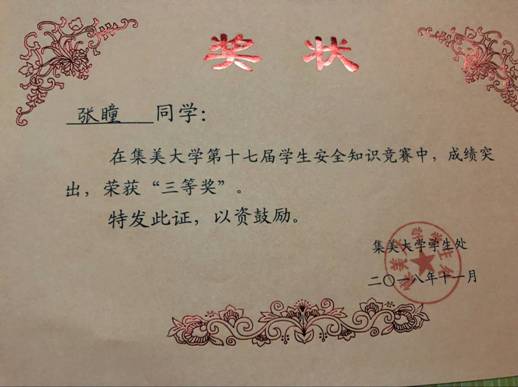 奖状
张瞳 同学：
在集美大学第十七届学生安全知识竞赛中，成绩突
出，荣获“三等奖”。
特发此证，以资鼓励。
集美大学学生处
二〇一八年十一月